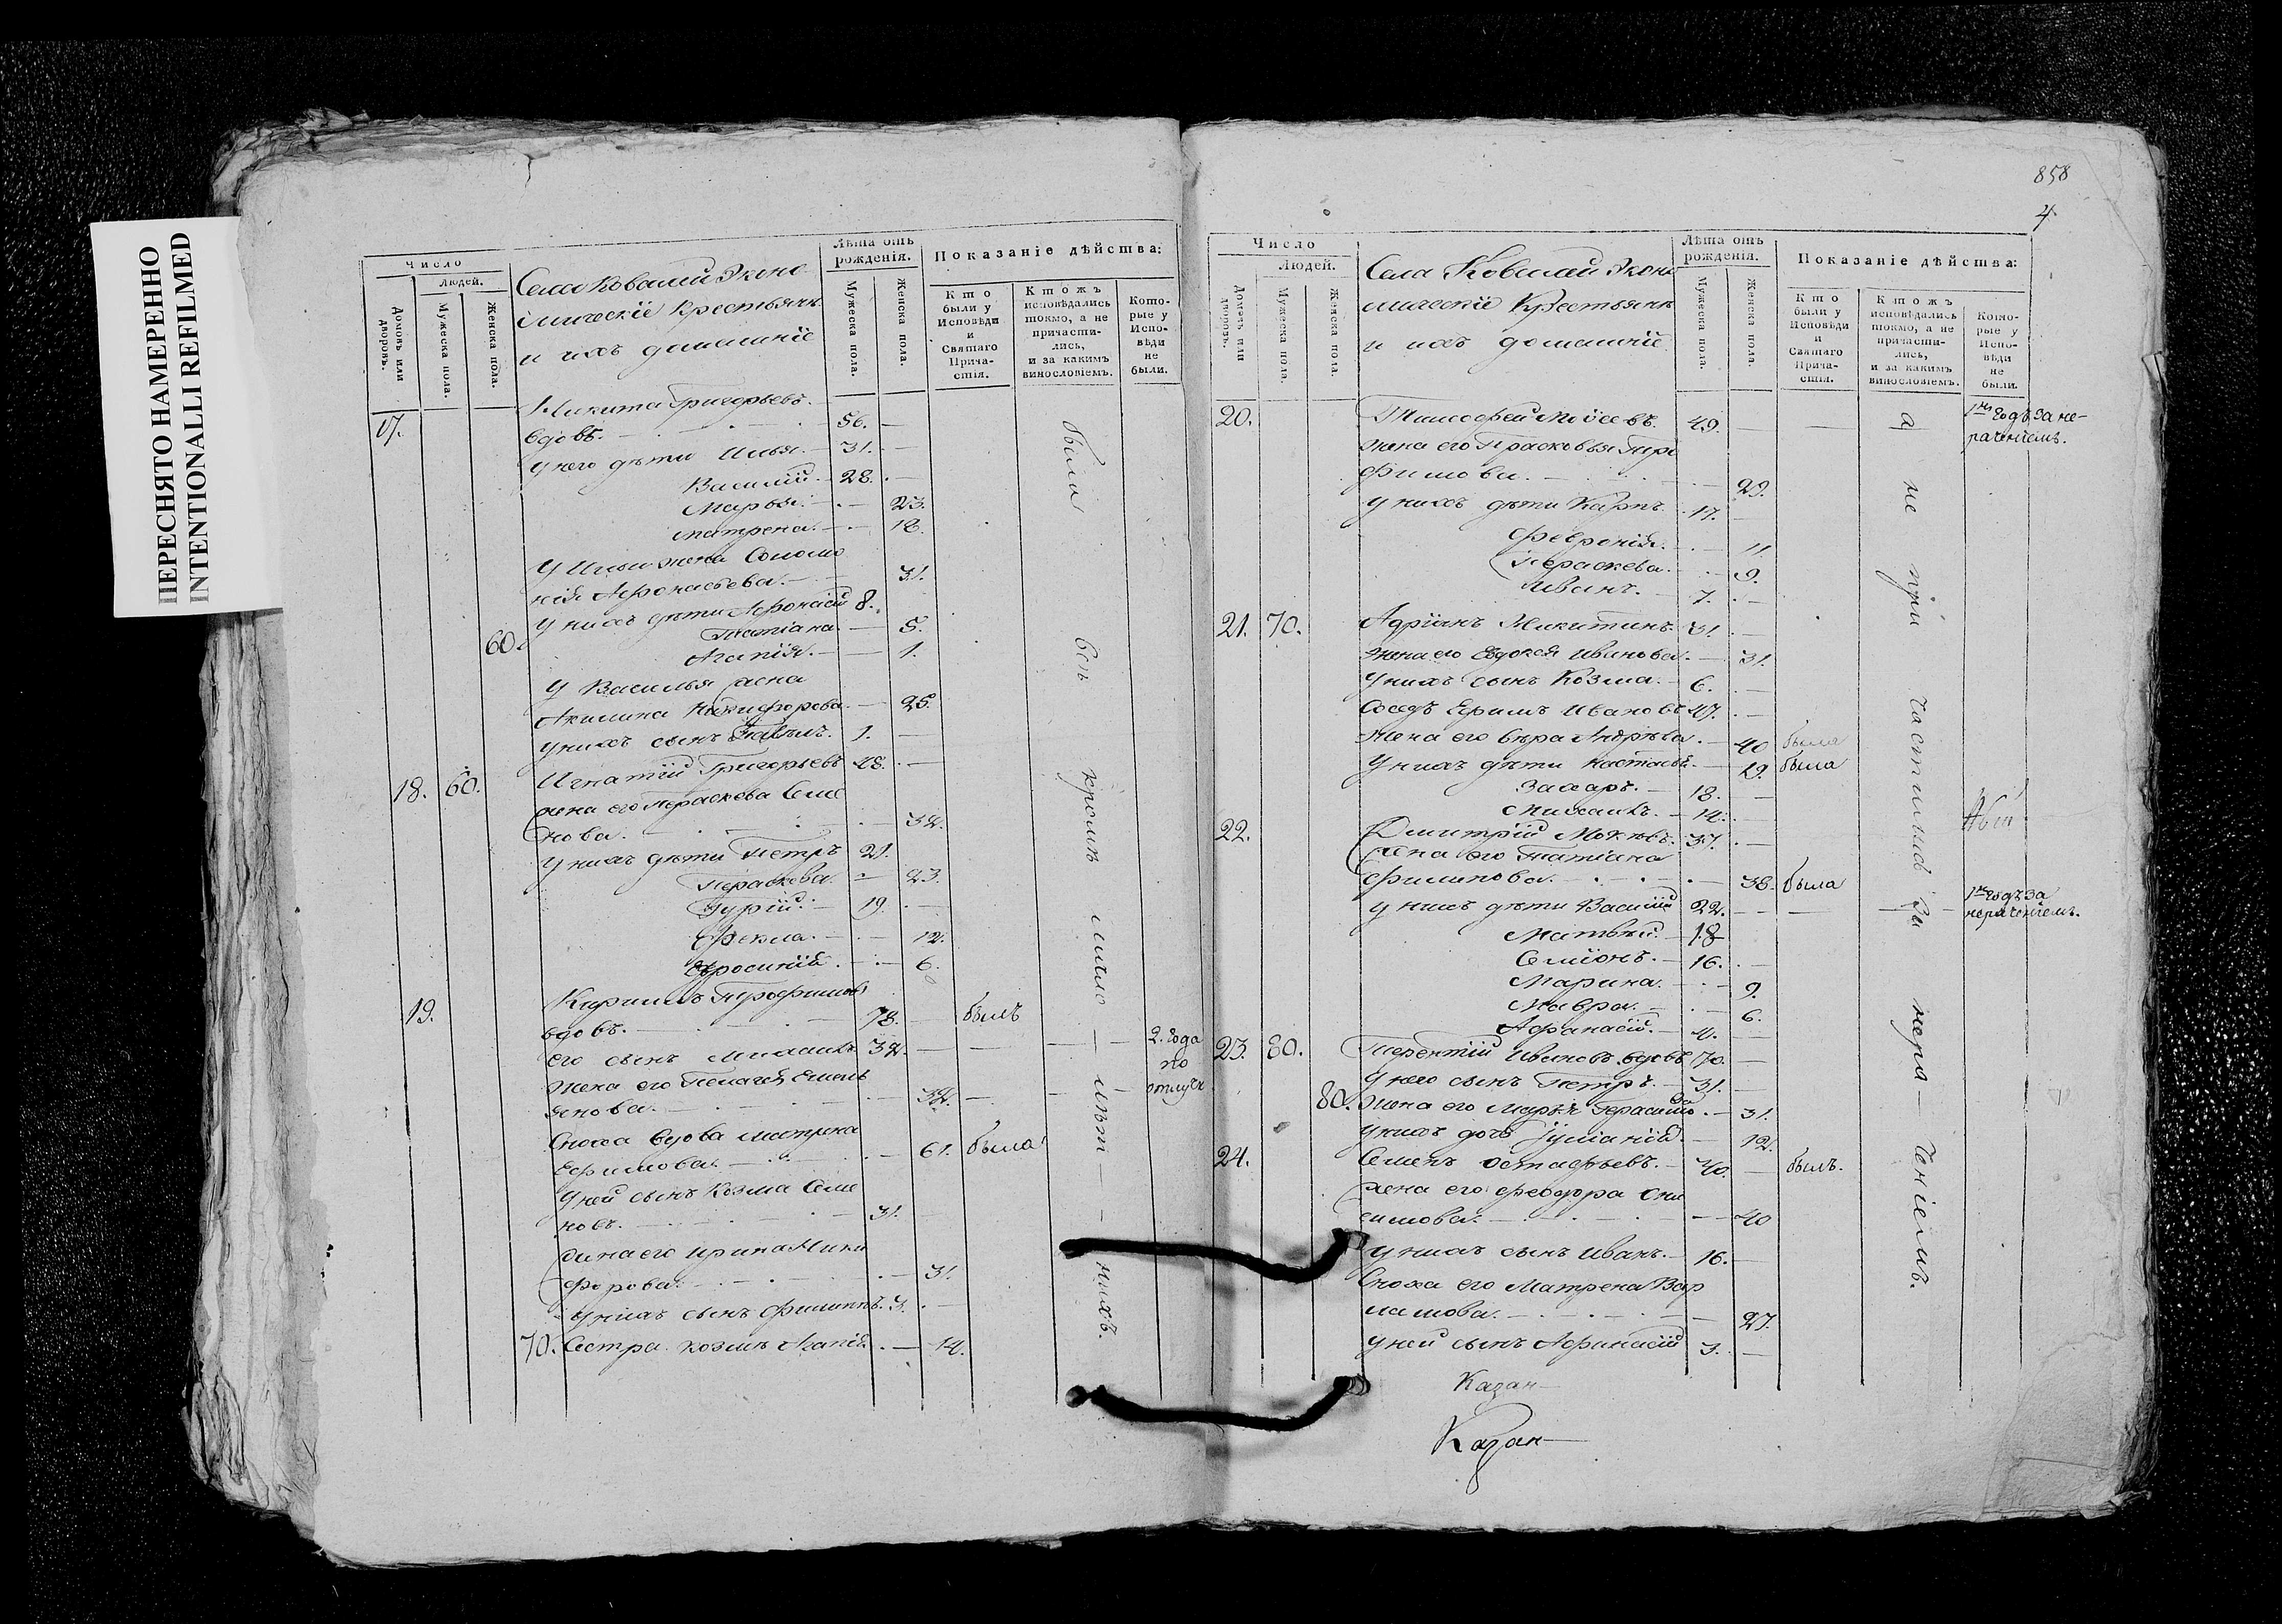 ПЕРЕСНЯТО НАМЕРЕННО
INTENTIONALLI REFILMED
Число
Людей.
Домовъ или дворовъ.
Мужеска пола.
Женска пола.
Села Ковалей Эконо
мическіе Крестьяне
и ихъ домашніе
Лѣта отъ рожденія.
Мужеска пола.
Женска пола.
Показаніе дѣйства:
Кто были у Исповѣди и Святаго Причастія.
Ктожъ исповѣдались токмо, а не причастились, и за какимъ винословіемъ.
Которые у Исповѣди не были.
17. Никита Григорьевъ
вдовъ. 56.
У него дѣти Илья. 31.
Василій. 28.
Марья. 23.
Матрена. 18.
У Ильи жена Соломо
нія Афонасьева. 31.
У нихъ дѣти Афонасій 8.
Татіана. 5.
60. Агапія. 1.
У Василья жена
Акилина Никифорова. 25.
У нихъ сынъ Павелъ. 1.
18. 60. Игнатій Григорьевъ 48.
жена его Параскева Семе
нова. 34.
У нихъ дѣти Петръ 21.
Параскева 23.
Гурій. 19.
Фекла. 12.
Ефросинія. 6.
19. Кирилъ Трофимовъ
вдовъ. 78. былъ
его сынъ Михаилъ 34. 2. года
по
отлучк
Жена его Пелагея Емель
янова. 34.
Сноха вдова Матрена
Ефимова. 61. была
У ней сынъ Козма Семе
новъ. 31.
жена его Ирина Ники
форова. 31.
У нихъ сынъ Филиппъ. 3.
70. Сестра Козмѣ Агапія 14.
были всѣ кромѣ мало лѣт нихъ.
858
4.
Число
Людей.
Домовъ или дворовъ.
Мужеска пола.
Женска пола.
Села Ковалей Эконо
мическіе Крестьяне
и ихъ домашніе
Лѣта отъ рожденія.
Мужеска пола.
Женска пола.
Показаніе дѣйства:
Кто были у Исповѣди и Святаго Причастія.
Ктожъ исповѣдались токмо, а не причастились, и за какимъ винословіемъ.
Которые у Исповѣди не были.
20. Тимофей Моѵсеевъ. 49. годъ за не-
раченіемъ.
Жена его Прасковья Тро
фимова. 29.
У нихъ дѣти Карпъ. 17.
Февронія. 11.
Параскева. 9.
Иванъ. 7.
21. 70. Адріанъ Никитинъ. 31.
Жена его Евдокея Иванова. 31.
У нихъ сынъ Козма. 6.
Сосѣдъ Ефимъ Ивановъ 47.
Жена его Вѣра Андрѣева. 40 была
У нихъ дѣти Настасья. 19. была
Захаръ. 18.
Михаилъ. 14.
22. Дмитрій 37.
жена его Татіана
Филипова. 38. была
У нихъ дѣти Василій 22. годъ за
нераченіемъ.
Матвѣй. 18
Семіонъ. 16.
Марина. 9.
Мавра. 6.
Афанасій. 4.
23. 80. Терентій Ивановъ вдовъ 70.
У него сынъ Петръ. 31.
80. Жена его Марья Герасимова. 31.
У нихъ дочь Іуліанія. 12.
24. Семенъ Остафьевъ. 40. былъ.
жена его Феодора Они
симова. 40
У нихъ сынъ Иванъ. 16.
Сноха его Матрена Вар
ламова. 27.
У ней сынъ Афанасій 3.
а не при частились за нера ченіемъ.
Казан
Казан